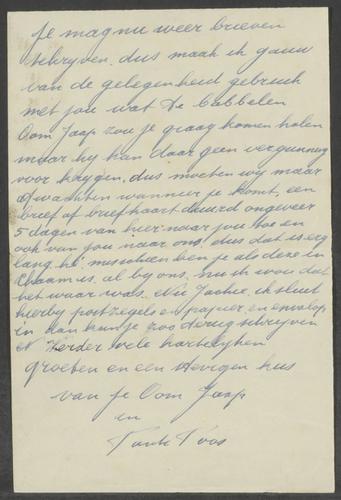 Je mag nu weer brieven
schryven, dus maak ik gauw
van de gelegenheid gebruik
met jou wat te babbelen
Oom Jaap zou je graag komen halen
maar hy kan daar geen vergunning
voor krygen, dus moeten wy maar
afwachten wanneer je komt, een
brief of briefkaart duurd ongeveer
5 dagen van hier naar jou toe en
ook van jou naar ons, dus dat is erg
lang hè, misschien ben je als deze in
Chaam is, al by ons, nu ik wou dat
het waar was. Nu Jackie, ik sluit
hierby postzegels en papier en envelop
in dan kun je zoo terug schryven
Verder vele hartelyken
groeten en een stevigen kus
van je Oom Jaap
en
Tante Toos